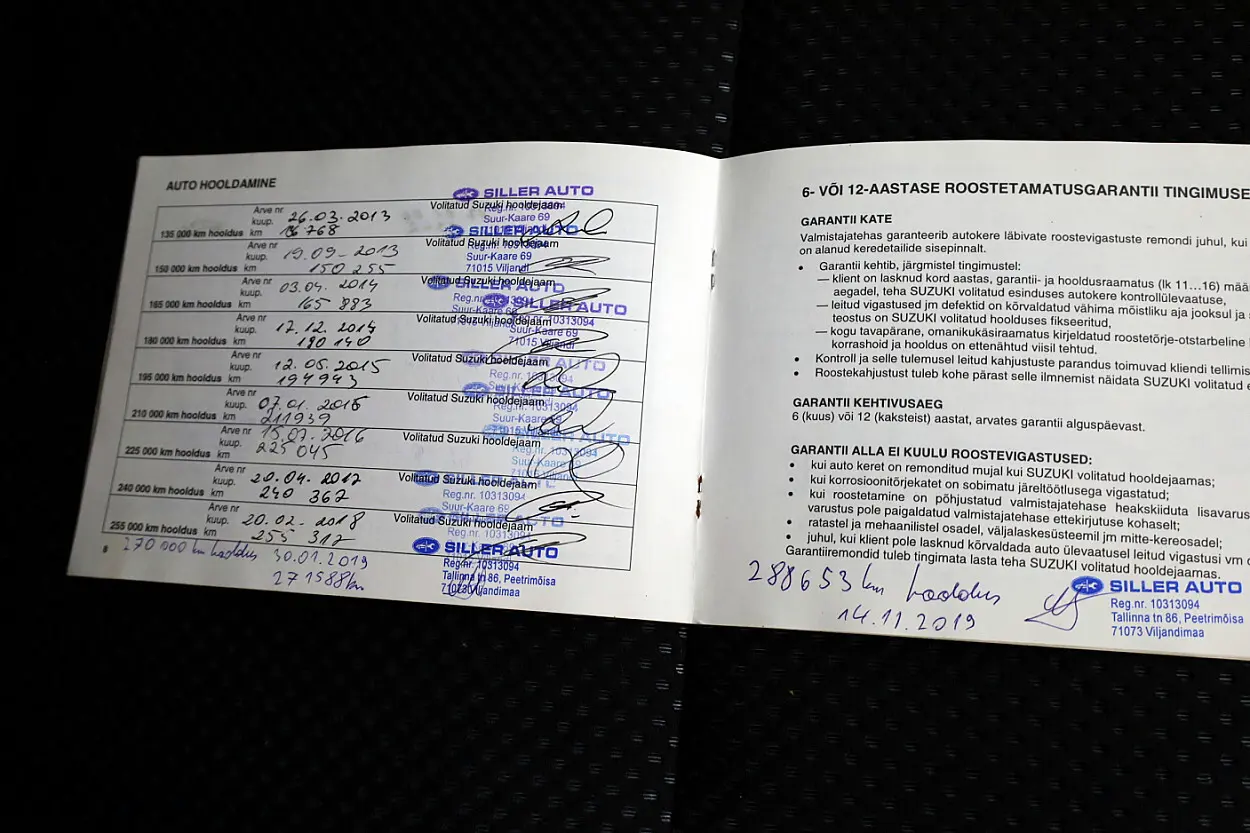 AUTO HOOLDAMINE
SILLER AUTO
Arve nr
Volitatud Suzuki hooldejaam
Reg.nr. 10313094
kuup. 26.03.2013
Suur-Kaare 69
135 000 km hooldus km
SILLER AUTO
Arve nr
Volitatud Suzuki hooldejaam
kuup. 19.09-2013
Suur-Kaare 69
150 000 km hooldus km 150 255
71015 Viljandi
Arve nr
Volitatud Suzuki hooldejaam
kuup. 03.04.2014
165 000 km hooldus km 165 883
SILLER AUTO
Arve nr
Volitatud Suzuki hooldejaam
kuup. 17.12.2014
Suur-Kaare 69
180 000 km hooldus km 180 140
71015 Viljandi
Arve nr
Volitatud Suzuki hooldejaam
kuup. 12.05.2015
Reg.nr. 10313094
195 000 km hooldus km 194943
Arve nr
Volitatud Suzuki hooldejaam
kuup. 07.01.2016
Reg.nr. 10313094
210 000 km hooldus km 211939
Suur-Kaare 69
kuup. 15.07.2016
Volitatud Suzuki hooldejaam
225 000 km hooldus km 225 045
Suur-Kaare 69
Arve nr
Volitatud Suzuki hooldejaam
kuup. 20.04.2017
Reg.nr. 10313094
240 000 km hooldus km 240 367
Arve nr
Volitatud Suzuki hooldejaam
kuup. 20.02.2018
255 000 km hooldus km 255 317
SILLER AUTO
8
270 000 km hooldus 30.01.2019
Reg.nr. 10313094
271588km
Tallinna tn 86, Peetrimõisa
71073 Viljandimaa
6- VÕI 12-AASTASE ROOSTETAMATUSGARANTII TINGIMUSE
GARANTII KATE
Valmistajatehas garanteerib autokere läbivate roostevigastuste remondi juhul, kui
on alanud keredetailide sisepinnalt.
• Garantii kehtib, järgmistel tingimustel:
— klient on lasknud kord aastas, garantii- ja hooldusraamatus (lk 11…16) mää
aegadel, teha SUZUKI volitatud esinduses autokere kontrollülevaatuse,
— leitud vigastused jm defektid on kõrvaldatud vähima mõistliku aja jooksul ja
teostus on SUZUKI volitatud hoolduses fikseeritud,
— kogu tavapärane, omanikukäsiraamatus kirjeldatud roostetõrje-otstarbeline
korrashoid ja hooldus on ettenähtud viisil tehtud.
• Kontroll ja selle tulemusel leitud kahjustuste parandus toimuvad kliendi tellimis
• Roostekahjustust tuleb kohe pärast selle ilmnemist näidata SUZUKI volitatud e
GARANTII KEHTIVUSAEG
6 (kuus) või 12 (kaksteist) aastat, arvates garantii alguspäevast.
GARANTII ALLA EI KUULU ROOSTEVIGASTUSED:
• kui auto keret on remonditud mujal kui SUZUKI volitatud hooldejaamas;
• kui korrosioonitõrjekatet on sobimatu järeltöötlusega vigastatud;
• kui roostetamine on põhjustatud valmistajatehase heakskiiduta lisavarus
varustus pole paigaldatud valmistajatehase ettekirjutuse kohaselt;
• ratastel ja mehaanilistel osadel, väljalaskesüsteemil jm mitte-kereosadel;
• juhul, kui klient pole lasknud kõrvaldada auto ülevaatusel leitud vigastusi vm
Garantiiremondid tuleb tingimata lasta teha SUZUKI volitatud hooldejaamas.
288653 km hooldus
14.11.2019
SILLER AUTO
Reg.nr. 10313094
Tallinna tn 86, Peetrimõisa
71073 Viljandimaa